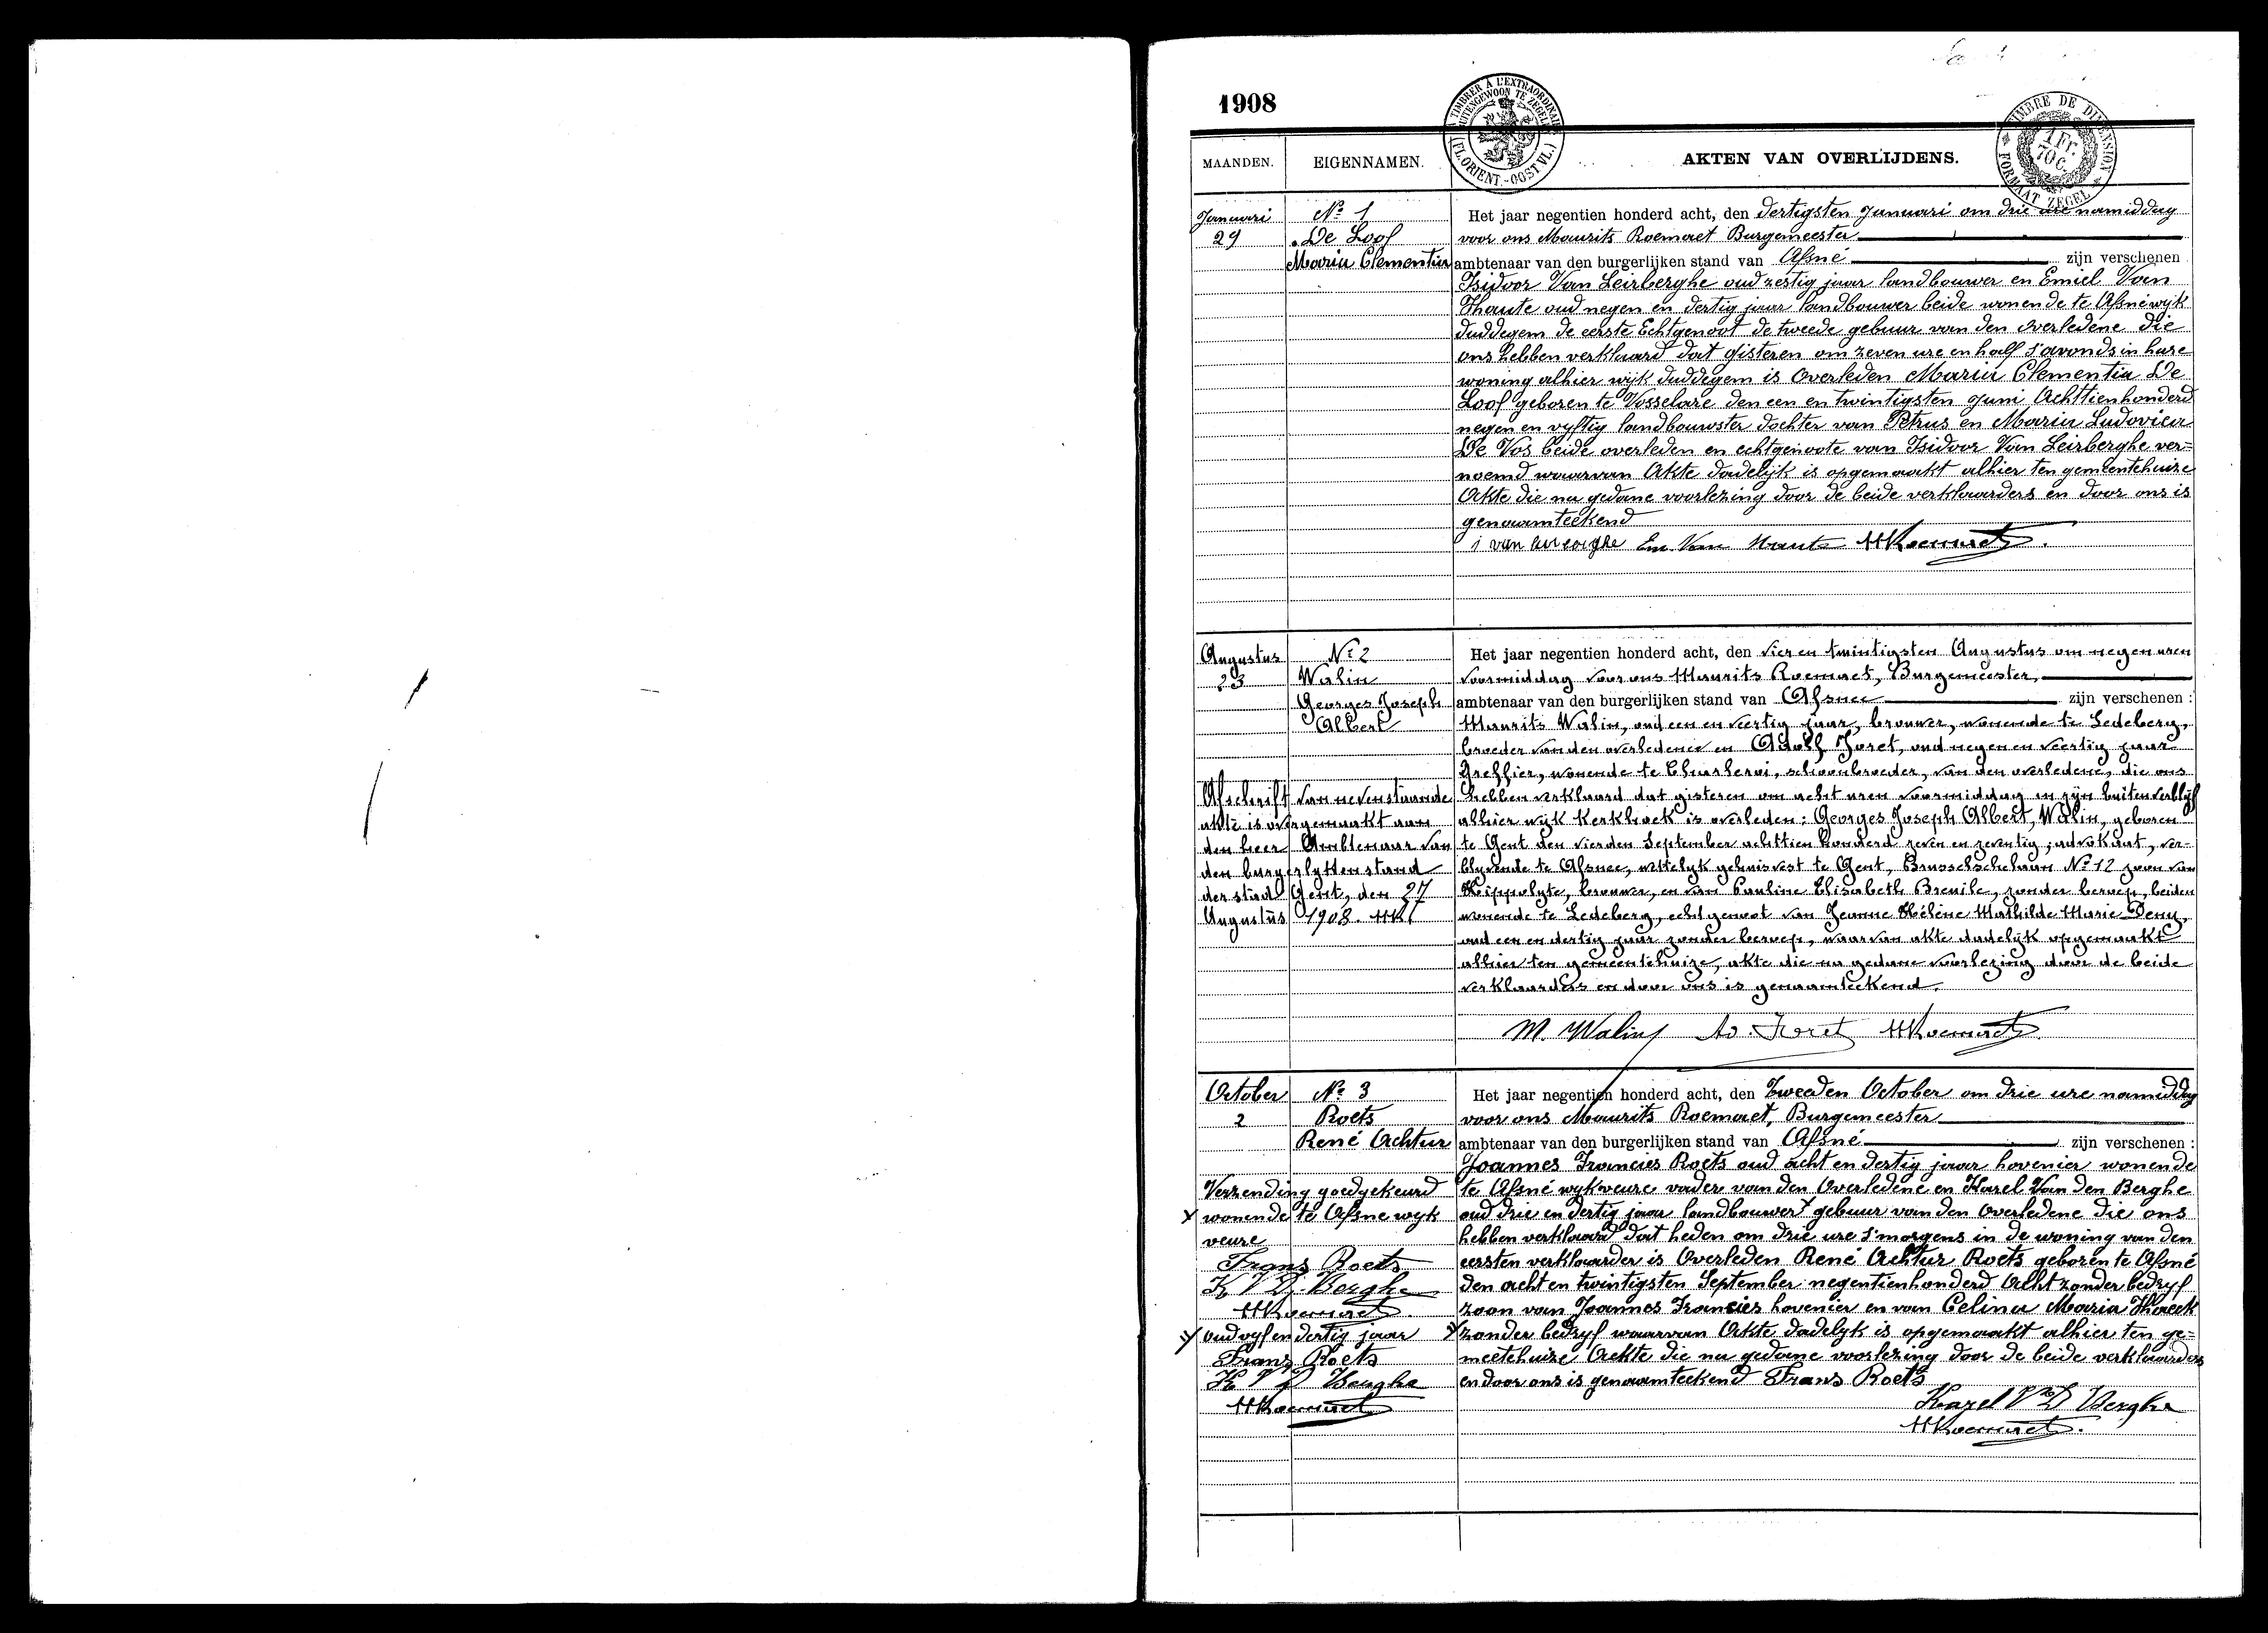 1908
TIMBRER A L'EXTRAORDINAIRE
BUITENGEWOON TE ZEGELEN
(FL. ORIENT.-OOST VL.)
TIMBRE DE DIMENSION
1 Fr. 70 C.
FORMAAT ZEGEL
MAANDEN. EIGENNAMEN. AKTEN VAN OVERLIJDENS.
Januari
29
Nº 1
De Loof
Maria Clementia
Het jaar negentien honderd acht, den dertigsten Januari om drie ure namiddag
voor ons Maurits Roemaet Burgemeester
ambtenaar van den burgerlijken stand van Afsné zijn verschenen
Isidoor Van Leirberghe oud zestig jaar landbouwer en Emiel Van
Thaute oud negen en dertig jaar landbouwer beide wonende te Afsné wijk
duddegem de eerste Echtgenoot de tweede gebuur van den overledene die
ons hebben verklaard dat gisteren om zeven ure en half s'avonds in hare
woning alhier wijk duddegem is Overleden Maria Clementia De
Loof geboren te Vosselare den een en twintigsten Juni Achttienhonderd
negen en vyftig landbouwster dochter van Petrus en Maria Ludovica
De Vos beide overleden en echtgenoote van Isidoor Van Leirberghe ver=
noemd waarvan Akte dadelijk is opgemaakt alhier ten gemeentehuize
Akte die na gedane voorlezing door de beide verklaarders en door ons is
genaamteekend
Augustus
23
Nº 2
Walin
Georges Joseph
Albert
Het jaar negentien honderd acht, den vier en twintigsten Augustus om negen uren
voormiddag voor ons Maurits Roemaet, Burgemeester,
ambtenaar van den burgerlijken stand van Afsnee zijn verschenen :
Maurits Walin, oud een en veertig jaar, brouwer, wonende te Ledeberg,
broeder van den overledene en Adolf Joret, oud negen en veertig jaar
Greffier, wonende te Charleroi, schoonbroeder, van den overledene, die ons
hebben verklaard dat gisteren om acht uren voormiddag in zijn buitenverblijf
alhier wijk Kerkhoek is overleden: Georges Joseph Albert, Walin, geboren
te Gent den vierden September achttien honderd zeven en zeventig, advokaat, ver-
blyvende te Afsnee, wettelyk gehuisvest te Gent, Brusselschelaan Nº 12 zoon van
Hippolyte, brouwer, en van Pauline Elisabeth Breuile, zonder beroep, beiden
wonende te Ledeberg, echtgenoot van Jeanne Hélène Mathilde Marie
oud een en dertig jaar zonder beroep, waarvan akte dadelyk opgemaakt
alhier ten gemeentehuize, akte die na gedane voorlezing door de beide
verklaarders en door ons is genaamteekend.
Afschrift van nevenstaande
akte is overgemaakt aan
den heer Ambtenaar van
den burgerlyken stand
der stad Gent, den 27
Augustus 1908.
M. Walin Ad. Joret MRoemaet
October
2
Nº 3
Roets
René Achtur
Het jaar negentien honderd acht, den Tweeden October om drie ure namiddag
voor ons Maurits Roemaet, Burgemeester
ambtenaar van den burgerlijken stand van Afsné zijn verschenen :
Joannes Francies Roets oud acht en dertig jaar hovenier wonende
te Afsné wyk veure vader van den Overledene en Karel Van den Berghe
oud drie en dertig jaar landbouwer gebuur van den Overledene die ons
hebben verklaard dat heden om drie ure s'morgens in de woning van den
eersten verklaarder is Overleden René Achtur Roets geboren te Afsné
den acht en twintigsten September negentienhonderd Acht zonder bedryf
zoon van Joannes Francies hovenier en van Celina Maria
zonder bedryf waarvan Akte dadelyk is opgemaakt alhier ten ge=
meetehuize Aekte die na gedane voorlezing door de beide verklaarders
en door ons is genaamteekend Frans Roets
Karel Vn D Berghe
MRoemaet
Verzending goedgekeurd
wonende te Afsne wyk
veure
Frans Roets
K V D Berghe
MRoemaet
oud vyf en dertig jaar
Frans Roets
K V D Berghe
MRoemaet